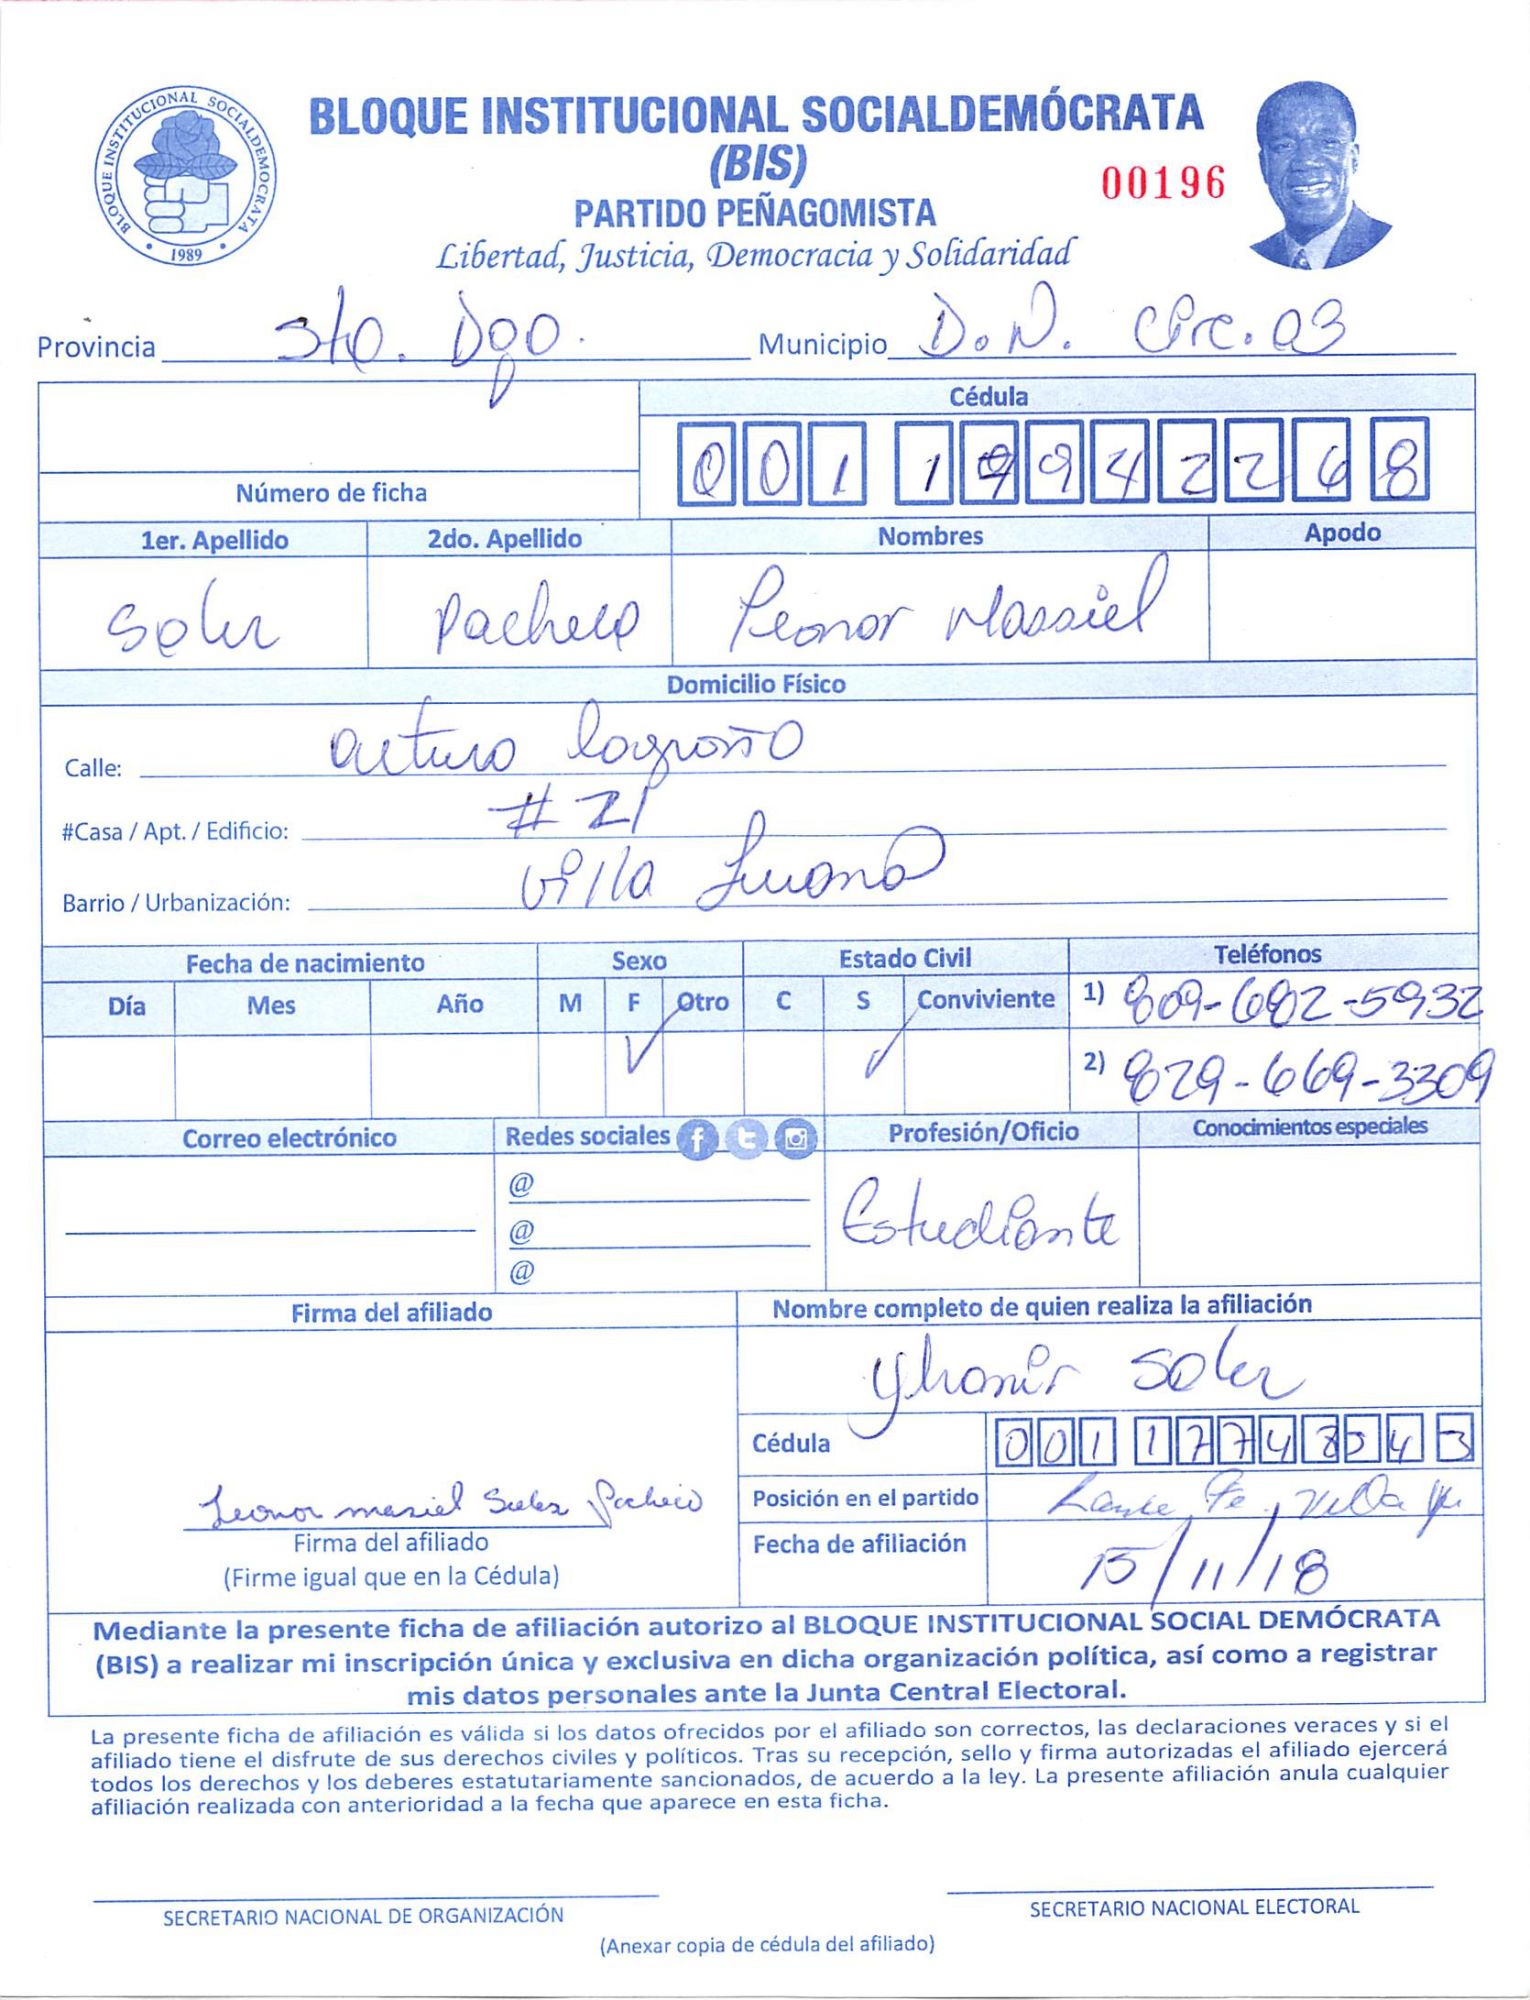 BLOQUE INSTITUCIONAL SOCIALDEMOCRATA
1989
BLOQUE INSTITUCIONAL SOCIALDEMÓCRATA
(BIS)
00196
PARTIDO PEÑAGOMISTA
Libertad, Justicia, Democracia y Solidaridad
Provincia Sto. Dgo. Municipio D.N. Circ. 03
Cédula
001 1994226 8
Número de ficha
1er. Apellido 2do. Apellido Nombres Apodo
Soler Pacheco Leonor Massiel
Domicilio Físico
Calle: Arturo Logroño
#Casa / Apt. / Edificio: # 21
Barrio / Urbanización: Villa Juana
Fecha de nacimiento Sexo Estado Civil Teléfonos
Día Mes Año M F Otro C S Conviviente 1) 809-682-5932
2) 829-669-3309
Correo electrónico Redes sociales Profesión/Oficio Conocimientos especiales
@
@
@
Estudiante
Firma del afiliado Nombre completo de quien realiza la afiliación
Yhamir Soler
Cédula 001 1774834 3
Leonor masiel Soler Pacheco
Posición en el partido Fe, Villa
Firma del afiliado
(Firme igual que en la Cédula)
Fecha de afiliación 15/11/18
Mediante la presente ficha de afiliación autorizo al BLOQUE INSTITUCIONAL SOCIAL DEMÓCRATA
(BIS) a realizar mi inscripción única y exclusiva en dicha organización política, así como a registrar
mis datos personales ante la Junta Central Electoral.
La presente ficha de afiliación es válida si los datos ofrecidos por el afiliado son correctos, las declaraciones veraces y si el
afiliado tiene el disfrute de sus derechos civiles y políticos. Tras su recepción, sello y firma autorizadas el afiliado ejercerá
todos los derechos y los deberes estatutariamente sancionados, de acuerdo a la ley. La presente afiliación anula cualquier
afiliación realizada con anterioridad a la fecha que aparece en esta ficha.
SECRETARIO NACIONAL DE ORGANIZACIÓN SECRETARIO NACIONAL ELECTORAL
(Anexar copia de cédula del afiliado)